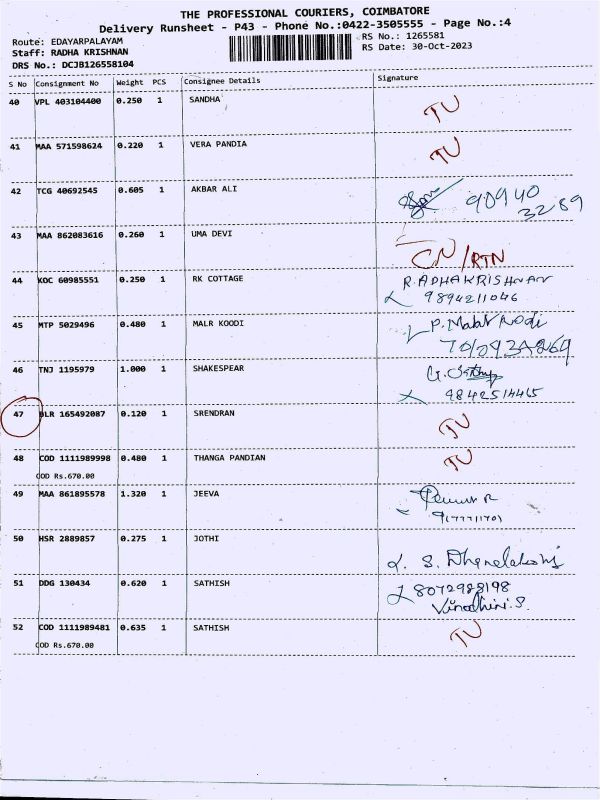 THE PROFESSIONAL COURIERS, COIMBATORE
Delivery Runsheet - P43 - Phone No.:0422-3505555 - Page No.:4
Route: EDAYARPALAYAM RS No.: 1265581
Staff: RADHA KRISHNAN RS Date: 30-Oct-2023
DRS No.: DCJB126558104
S No Consignment No Weight PCS Consignee Details Signature
40 VPL 403104400 0.250 1 SANDHA TU
41 MAA 571598624 0.220 1 VERA PANDIA TU
42 TCG 40692545 0.605 1 AKBAR ALI 90940
3289
43 MAA 862083616 0.260 1 UMA DEVI CN/RTN
44 KOC 60985551 0.250 1 RK COTTAGE R.ADHAKRISHNAN
9894211046
45 MTP 5029496 0.480 1 MALR KOODI P. Malar Kodi
46 TNJ 1195979 1.000 1 SHAKESPEAR
47 BLR 165492087 0.120 1 SRENDRAN TU
48 COD 1111989998 0.480 1 THANGA PANDIAN TU
COD Rs.670.00
49 MAA 861895578 1.320 1 JEEVA
50 HSR 2889857 0.275 1 JOTHI S. Dhanalakshmi
51 DDG 130434 0.620 1 SATHISH 8072988198
Vinodhini.S.
52 COD 1111989481 0.635 1 SATHISH TU
COD Rs.670.00